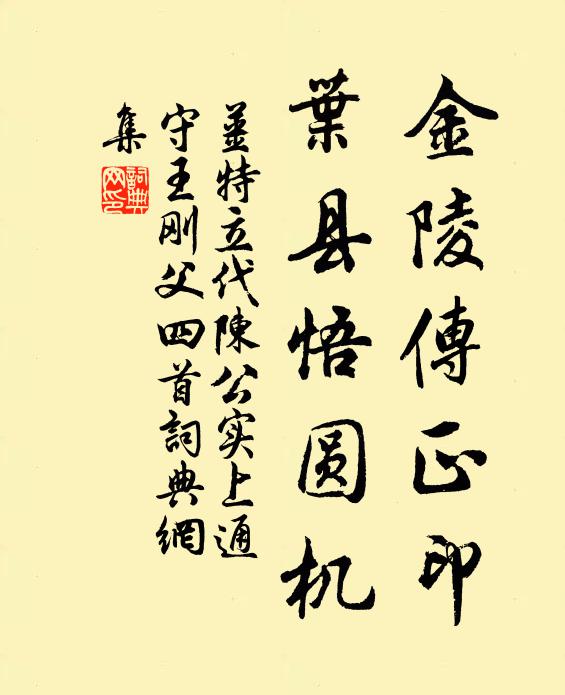 金陵傳正印
葉县悟圆机
姜特立代陳公实上通
守王刚父四首詞典網
集
詞典
网印